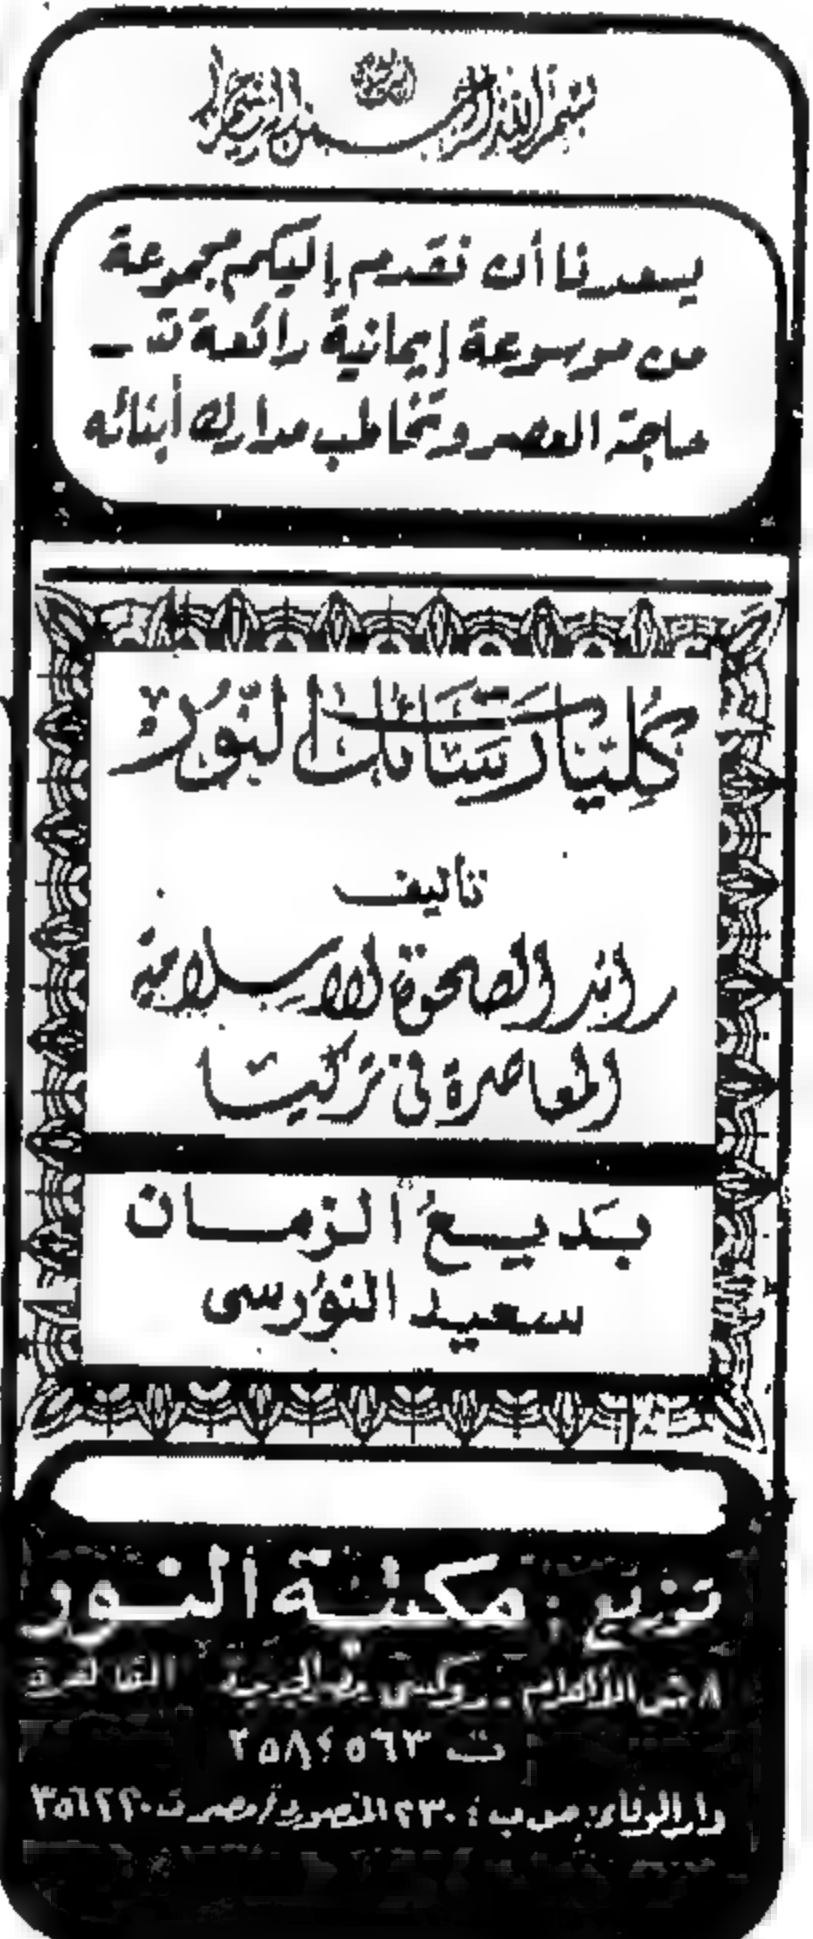 بسم الله الرحمن الرحيم
يسعدنا أن نقدم إليكم مجموعة
من موسوعة إيمانية رائعة تـ ــ
حاجة العصر وتخاطب مدارك أبنائه
كُليات رسَائل النّور
تأليف
رائد الصحوة الإسلامية
المعاصرة في تركيا
بَديعُ الزمان
سعيد النورسى
توزيع : مكتبة النور
٨ ش الأهرام - روكسي مصر الجديدة القاهرة
ت ٢٥٨٤٥٦٣
دار الوفاء: ص ب : ٢٣٠ المنصورة/مصر ت ٣٥٦٢٢٠